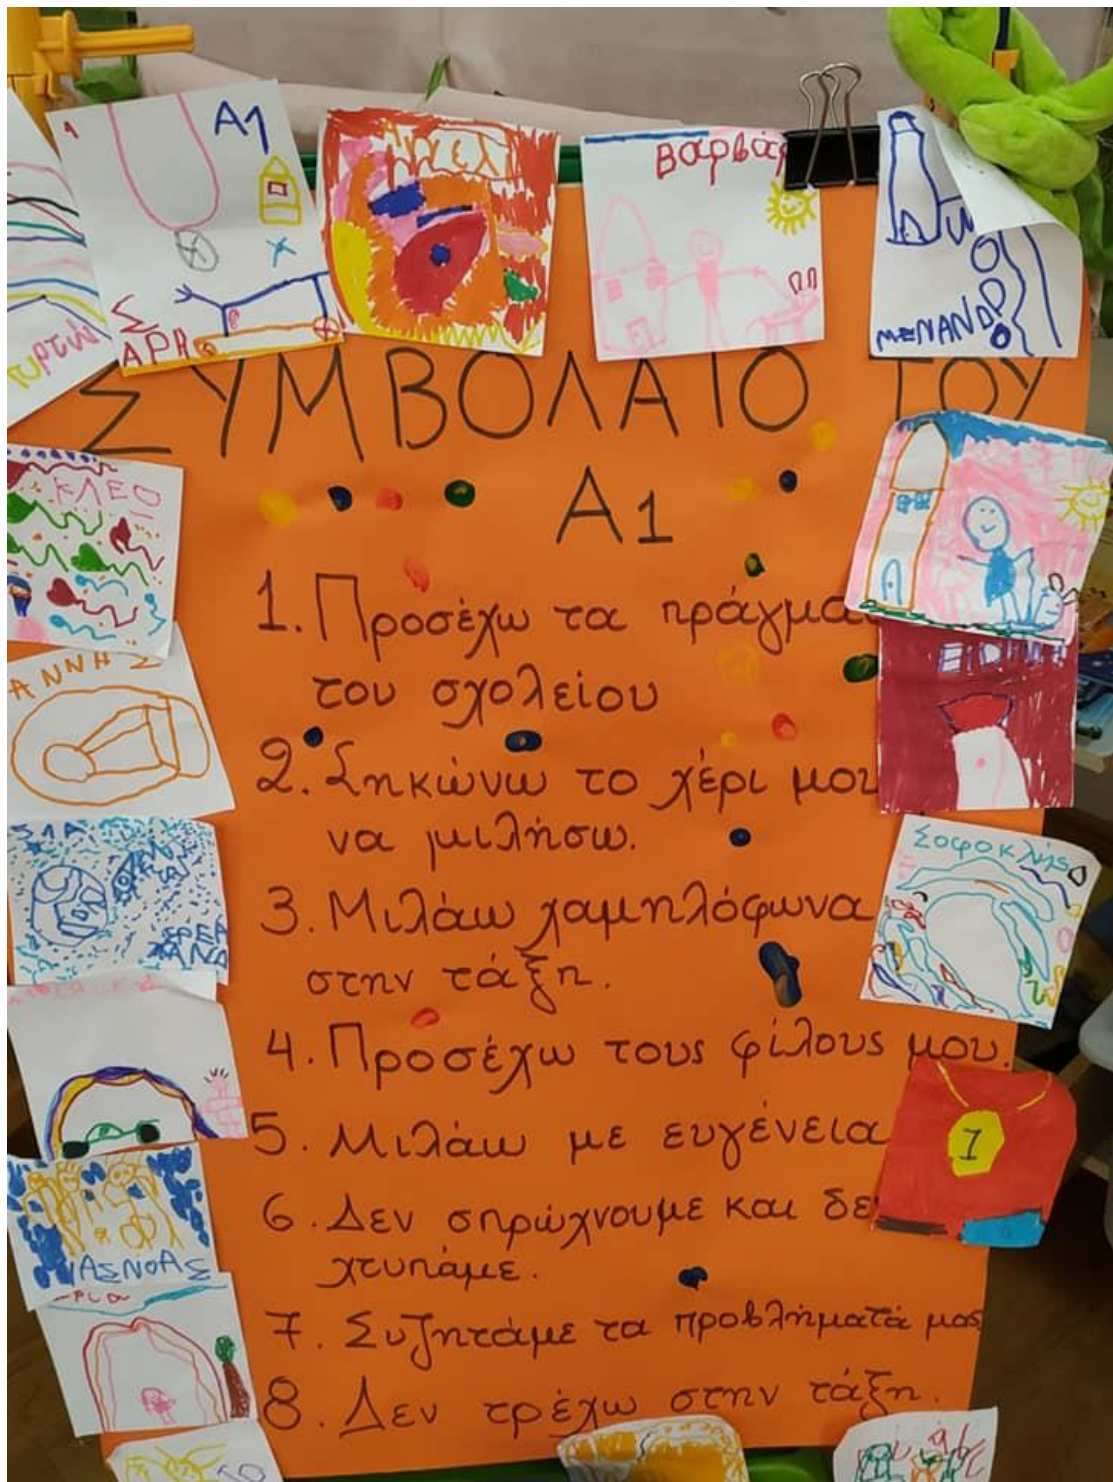 Α1
ΣΑΡΑ
ΜΕΝΑΝΔ
ΣΥΜΒΟΛΑΙΟ ΤΟΥ
Α1
ΚΛΕΟ
1. Προσέχω τα πράγμα
του σχολείου
ΑΝΝΗΣ
2. Σηκώνω το χέρι μου
να μιλήσω.
3. Μιλάω χαμηλόφωνα
στην τάξη.
Σοφοκλής
4. Προσέχω τους φίλους μου.
5. Μιλάω με ευγένεια
1
6. Δεν σπρώχνουμε και δε
χτυπάμε.
ΙΑΣΝΟΑΣ
7. Συζητάμε τα προβλήματά μας
8. Δεν τρέχω στην τάξη.